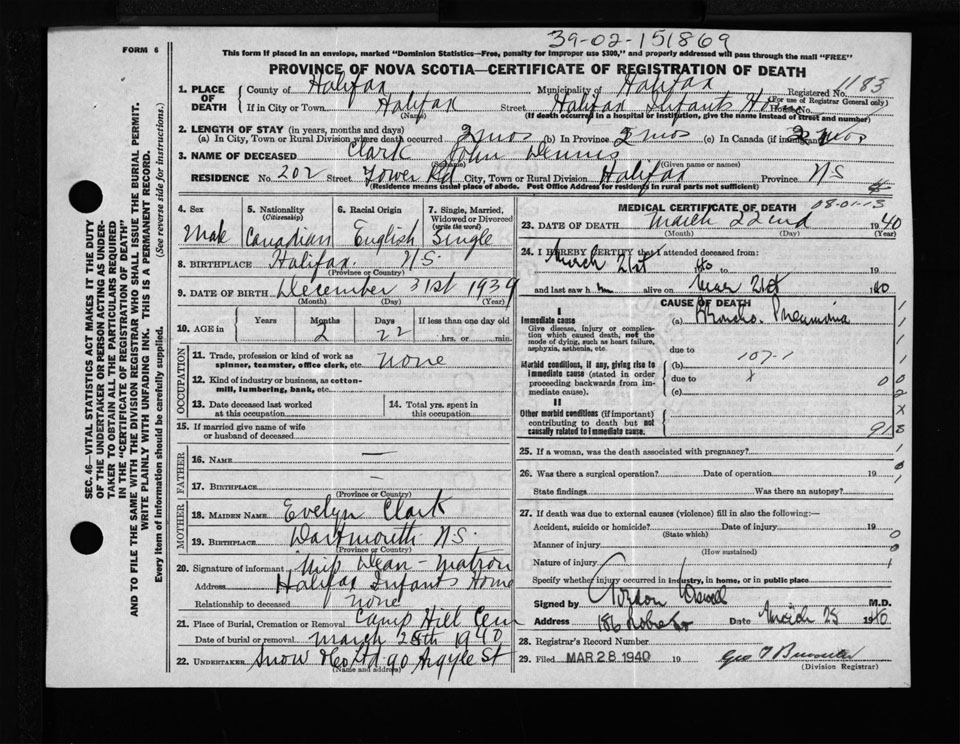 39-02-151869
FORM 6
This form if placed in an envelope, marked "Dominion Statistics—Free, penalty for improper use $300," and properly addressed will pass through the mail "FREE"
PROVINCE OF NOVA SCOTIA—CERTIFICATE OF REGISTRATION OF DEATH
1. PLACE OF DEATH County of Halifax Municipality of Halifax Registered No. 1183
(For use of Registrar General only)
If in City or Town Halifax Street Halifax Infants Home House No.
(Name) (If death occurred in a hospital or institution, give the name instead of street and number)
2. LENGTH OF STAY (in years, months and days)
(a) In City, Town or Rural Division where death occurred 2 mos (b) In Province 2 mos (c) In Canada (if immigrant) 2 mos
3. NAME OF DECEASED Clark John Dennis
(Surname) (Given name or names)
RESIDENCE No. 202 Street Tower Rd City, Town or Rural Division Halifax Province N S
(Residence means usual place of abode. Post Office Address for residents in rural parts not sufficient)
4. Sex Male
5. Nationality (Citizenship) Canadian
6. Racial Origin English
7. Single, Married, Widowed or Divorced (write the word) Single
8. BIRTHPLACE Halifax. N.S.
(Province or Country)
9. DATE OF BIRTH December 31st 1939
(Month) (Day) (Year)
10. AGE in Years Months 2 Days 22 If less than one day old
hrs. or min.
OCCUPATION
11. Trade, profession or kind of work as spinner, teamster, office clerk, etc. none
12. Kind of industry or business, as cotton-mill, lumbering, bank, etc.
13. Date deceased last worked at this occupation
14. Total yrs. spent in this occupation
15. If married give name of wife or husband of deceased
FATHER
16. NAME —
17. BIRTHPLACE —
(Province or Country)
MOTHER
18. MAIDEN NAME Evelyn Clark
19. BIRTHPLACE Dartmouth N.S.
(Province or Country)
20. Signature of informant Miss Dean - Matron
Address Halifax Infants Home
Relationship to deceased none
21. Place of Burial, Cremation or Removal Camp Hill Cem
Date of burial or removal March 28th 1940
22. UNDERTAKER Snow & Co Ltd 90 Argyle St
(Name and address)
MEDICAL CERTIFICATE OF DEATH 08-01-13
23. DATE OF DEATH March 22nd 1940
(Month) (Day) (Year)
24. I HEREBY CERTIFY that I attended deceased from:
March 21st to 19
and last saw h im alive on Mar 21st 1940
CAUSE OF DEATH
I
Immediate cause (a) Broncho. Pneumonia
Give disease, injury or complication which caused death, not the mode of dying, such as heart failure, asphyxia, asthenia, etc.
due to
Morbid conditions, if any, giving rise to immediate cause (stated in order proceeding backwards from immediate cause).
(b) 107-1
due to
(c)
II
Other morbid conditions (if important) contributing to death but not causally related to immediate cause.
25. If a woman, was the death associated with pregnancy?
26. Was there a surgical operation? Date of operation 19
State findings Was there an autopsy?
27. If death was due to external causes (violence) fill in also the following:—
Accident, suicide or homicide? Date of injury 19
(State which)
Manner of injury
(How sustained)
Nature of injury
Specify whether injury occurred in industry, in home, or in public place
Signed by Gordon M.D.
Address 186 Date March 25 1940
28. Registrar's Record Number
29. Filed MAR 28 1940 19
(Division Registrar)
SEC. 46—VITAL STATISTICS ACT MAKES IT THE DUTY
OF THE UNDERTAKER OR PERSON ACTING AS UNDER-
TAKER TO OBTAIN ALL THE PARTICULARS REQUIRED
IN THE "CERTIFICATE OF REGISTRATION OF DEATH"
AND TO FILE THE SAME WITH THE DIVISION REGISTRAR WHO SHALL ISSUE THE BURIAL PERMIT.
WRITE PLAINLY WITH UNFADING INK. THIS IS A PERMANENT RECORD.
Every item of information should be carefully supplied. (See reverse side for instructions.)